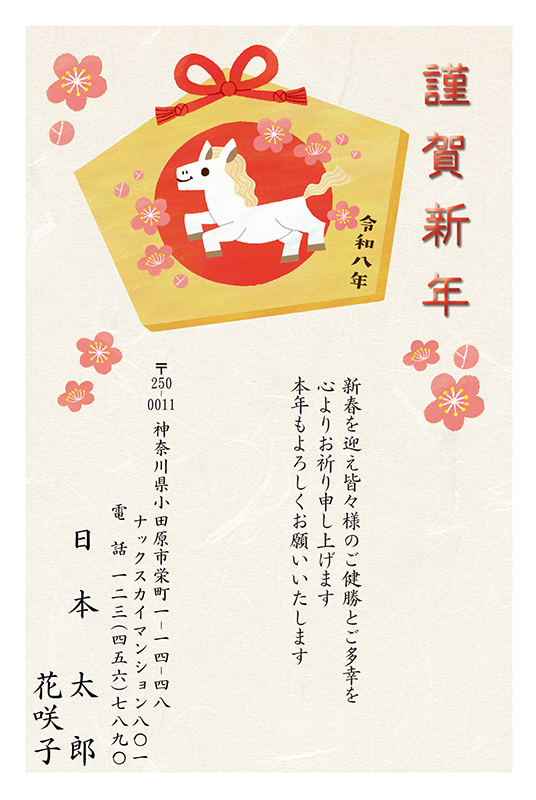 謹賀新年
令和八年
新春を迎え皆々様のご健勝とご多幸を
心よりお祈り申し上げます
本年もよろしくお願いいたします
〒250-0011 神奈川県小田原市栄町一-一四-四八
ナックスカイマンション八〇一
電話 一二三(四五六)七八九〇
日本 太郎
花咲子